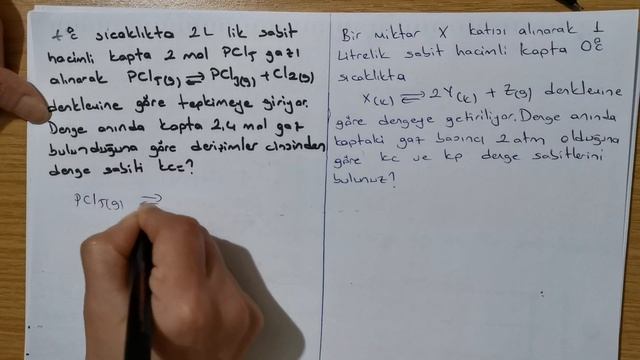 t°C sıcaklıkta 2L lik sabit
hacimli kapta 2 mol PCl5 gazı
alınarak PCl5(g) ⇌ PCl3(g) + Cl2(g)
denklemine göre tepkimeye giriyor.
Denge anında kapta 2,4 mol gaz
bulunduğuna göre derişimler cinsinden
denge sabiti kc=?
PCl5(g) ⇌
Bir miktar X katısı alınarak 1
Litrelik sabit hacimli kapta 0°C
sıcaklıkta
X(k) ⇌ 2Y(k) + Z(g) denklemine
göre dengeye getiriliyor. Denge anında
kaptaki gaz basıncı 2 atm olduğuna
göre kc ve kp denge sabitlerini
bulunuz?